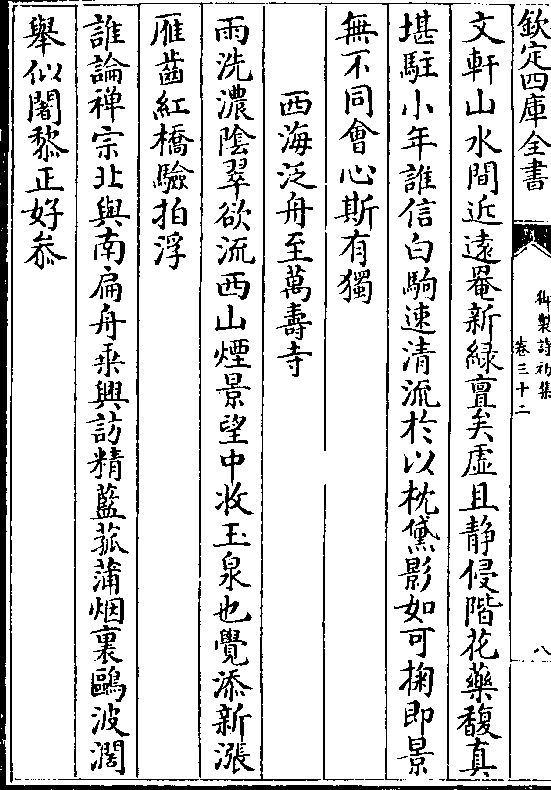 欽定四庫全書
御製詩初集
卷三十二
八
文軒山水間近遠罨新綠亶矣虛且静侵階花藥馥真
堪駐小年誰信白駒速清流於以枕黛影如可掬即景
無不同會心斯有獨
西海泛舟至萬壽寺
雨洗濃陰翠欲流西山煙景望中收玉泉也覺添新漲
雁齒紅橋驗拍浮
誰論禪宗北與南扁舟乘興訪精藍菰蒲烟裏鷗波濶
舉似闍黎正好叅